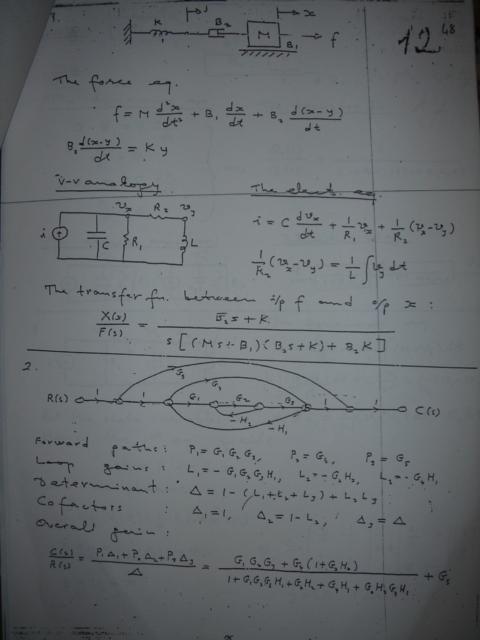 1.
K
y
B₂
M
x
B₁
f
12
48
The force eq.
f = M d²x/dt² + B₁ dx/dt + B₂ d(x-y)/dt
B₂ d(x-y)/dt = K y
i-v analogy
The elect. eq.
i
C
vₓ
R₁
R₂
v_y
L
i = C dvₓ/dt + 1/R₁ vₓ + 1/R₂ (vₓ-v_y)
1/R₂ (vₓ-v_y) = 1/L ∫ v_y dt
The transfer fn. between i/p f and o/p x :
X(s)/F(s) = B₂s + K / s[(Ms + B₁)(B₂s+K) + B₂K]
2.
R(s) 1 1 G₁ G₂ G₃ 1 1 C(s)
G₅
-H₂
-H₁
Forward paths: P₁ = G₁G₂G₃, P₂ = G₄, P₃ = G₅
Loop gains: L₁ = -G₁G₂G₃H₁, L₂ = -G₂H₂, L₃ = -G₄H₁
Determinant: Δ = 1 - (L₁+L₂+L₃) + L₂L₃
Cofactors: Δ₁ = 1, Δ₂ = 1-L₂, Δ₃ = Δ
Overall gain:
C(s)/R(s) = P₁Δ₁+P₂Δ₂+P₃Δ₃ / Δ = G₁G₂G₃ + G₄(1+G₂H₂) / 1+G₁G₂G₃H₁+G₂H₂+G₄H₁+G₂H₂G₄H₁ + G₅